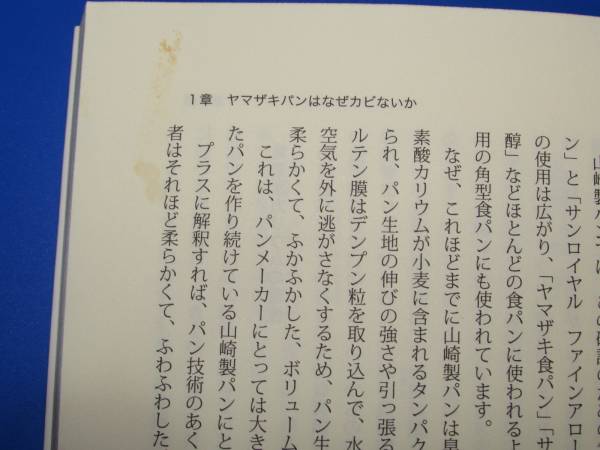 1章　ヤマザキパンはなぜカビないか
ン」と「サンロイヤル　ファインアロー
の使用は広がり、「ヤマザキ食パン」「サ
醇」などほとんどの食パンに使われるよ
用の角型食パンにも使われています。
なぜ、これほどまでに山崎製パンは臭
素酸カリウムが小麦に含まれるタンパク
られ、パン生地の伸びの強さや引っ張る
ルテン膜はデンプン粒を取り込んで、水
空気を外に逃がさなくするため、パン生
柔らかくて、ふかふかした、ボリューム
これは、パンメーカーにとっては大き
たパンを作り続けている山崎製パンにと
プラスに解釈すれば、パン技術のあく
者はそれほど柔らかくて、ふわふわした